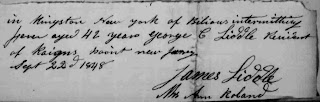 in Kingston New york of Bilious intermitting
fever aged 42 years George C Liddle Resident
of point new Jersey
Sept 22d 1848
James Liddle
Mrs Ann Roland